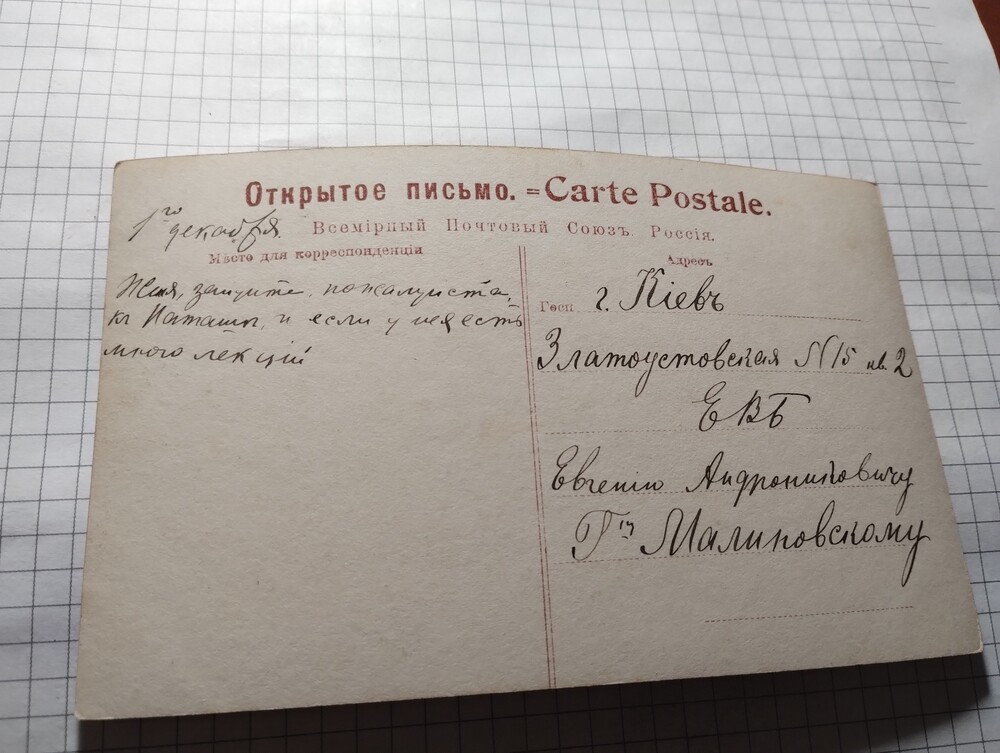 Открытое письмо. = Carte Postale.
1го декабря.
Всемірный Почтовый Союзъ. Россія.
Мѣсто для корреспонденціи
Адресъ
зайдите, пожалуйста,
къ Наташѣ, и если у нея есть
много лекцій
Госп
г. Кіевъ
Златоустовская N 15 кв. 2
ЕВБ
Евгенію Андрониковичу
Гну Малиновскому